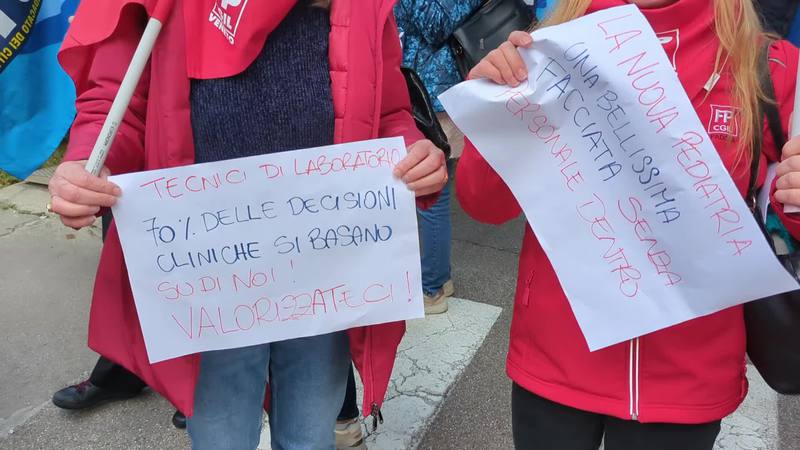 CGIL
VENETO
TECNICI DI LABORATORIO
70% DELLE DECISIONI
CLINICHE SI BASANO
SU DI NOI!
VALORIZZATECI!
LA NUOVA PEDIATRIA
UNA BELLISSIMA
FACCIATA SENZA
PERSONALE DENTRO
FP
CGIL